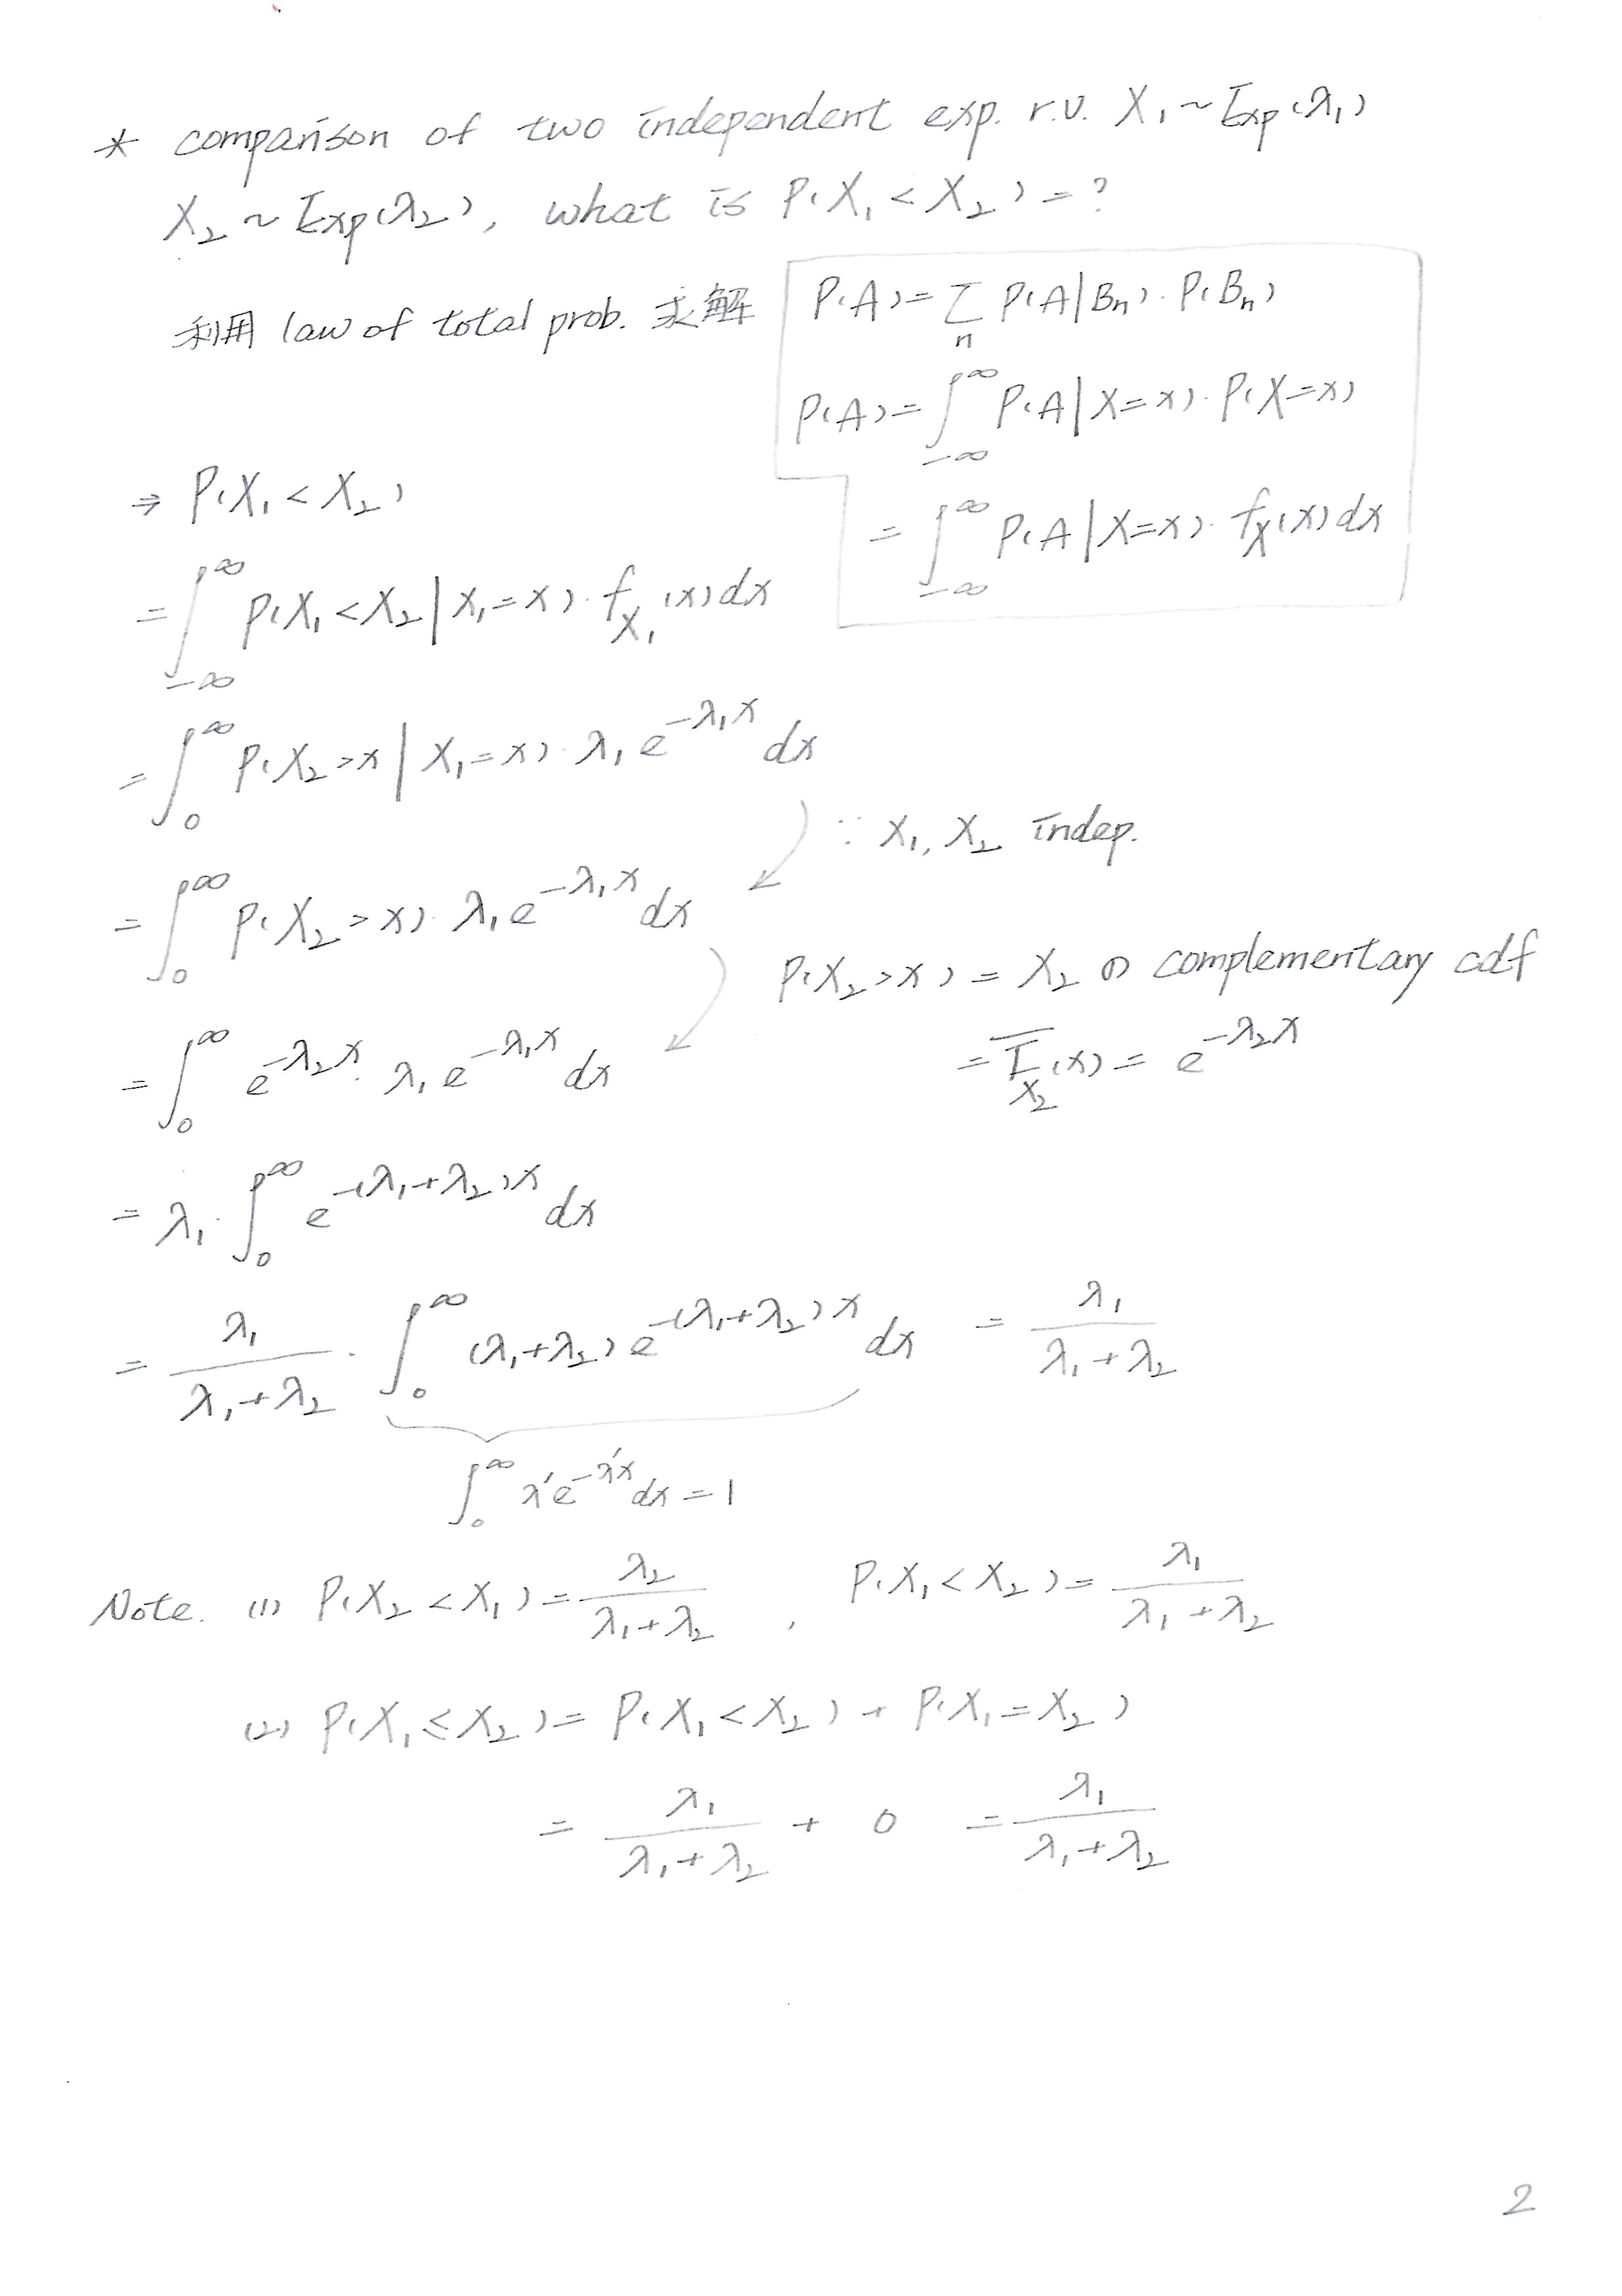 * comparison of two independent exp. r.v. X₁ ~ Exp(λ₁)
X₂ ~ Exp(λ₂), what is P(X₁ < X₂) = ?
利用 law of total prob. 求解
P(A) = Σ_n P(A|Bₙ)·P(Bₙ)
P(A) = ∫_{-∞}^{∞} P(A|X=x)·P(X=x)
= ∫_{-∞}^{∞} P(A|X=x)·f_X(x)dx
⇒ P(X₁ < X₂)
= ∫_{-∞}^{∞} P(X₁ < X₂ | X₁=x)·f_{X₁}(x)dx
= ∫_0^∞ P(X₂ > x | X₁=x)·λ₁e^{-λ₁x}dx
∵ X₁, X₂ indep.
= ∫_0^∞ P(X₂ > x)·λ₁e^{-λ₁x}dx
P(X₂ > x) = X₂ の complementary cdf
= F̄_{X₂}(x) = e^{-λ₂x}
= ∫_0^∞ e^{-λ₂x}·λ₁e^{-λ₁x}dx
= λ₁·∫_0^∞ e^{-(λ₁+λ₂)x}dx
= λ₁/(λ₁+λ₂) · ∫_0^∞ (λ₁+λ₂)e^{-(λ₁+λ₂)x}dx = λ₁/(λ₁+λ₂)
∫_0^∞ λ'e^{-λ'x}dx = 1
Note. (1) P(X₂ < X₁) = λ₂/(λ₁+λ₂), P(X₁ < X₂) = λ₁/(λ₁+λ₂)
(2) P(X₁ ≤ X₂) = P(X₁ < X₂) + P(X₁ = X₂)
= λ₁/(λ₁+λ₂) + 0 = λ₁/(λ₁+λ₂)
2